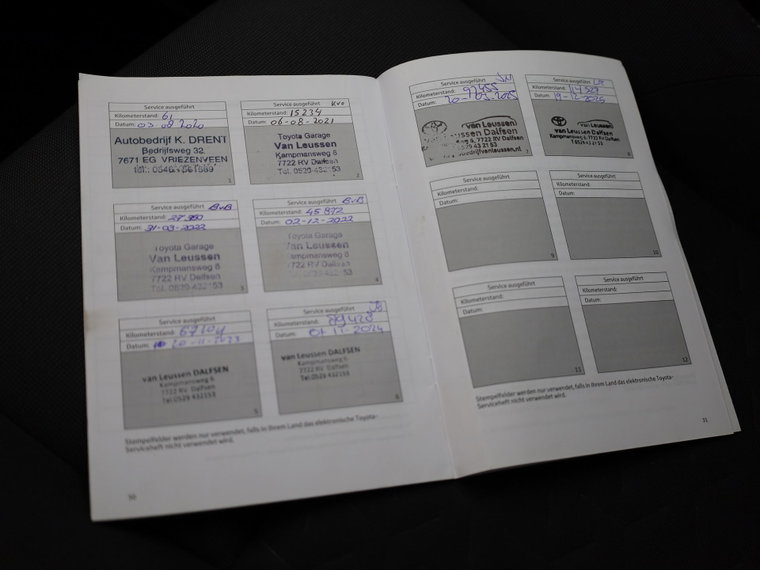 Service ausgeführt
Kilometerstand: 61
Datum: 03 08 2020
Autobedrijf K. DRENT
Bedrijfsweg 32,
7671 EG VRIEZENVEEN
1
Service ausgeführt KvO
Kilometerstand: 15234
Datum: 06-08-2021
Toyota Garage
Van Leussen
Kampmansweg 6
7722 RV Dalfsen
Tel. 0529-432153
2
Service ausgeführt
Kilometerstand: BvB
Datum: 31-03-2022
Toyota Garage
Van Leussen
Kampmansweg 6
7722 RV Dalfsen
Tel. 0529-432153
3
Service ausgeführt BvB
Kilometerstand: 45872
Datum: 02-12-2022
Toyota Garage
Van Leussen
Kampmansweg 6
7722 RV Dalfsen
Tel. 0529-432153
4
Service ausgeführt
Kilometerstand:
Datum: 20-11-2023
van Leussen DALFSEN
Kampmansweg 6
7722 RV Dalfsen
Tel.0529 432153
5
Service ausgeführt
Kilometerstand: 79428
Datum: 01-11-2024
van Leussen DALFSEN
Kampmansweg 6
7722 RV Dalfsen
Tel.0529 432153
6
Stempelfelder werden nur verwendet, falls in Ihrem Land das elektronische Toyota-
Serviceheft nicht verwendet wird.
30
Service ausgeführt
Kilometerstand: 97455
Datum: 20-05-2025
van Leussen
7
Service ausgeführt
Kilometerstand:
Datum: 19-12-2025
van Leussen
van Leussen Dalfsen
Kampmansweg 6, 7722 RV Dalfsen
T 0529 43 21 53
8
Service ausgeführt
Kilometerstand:
Datum:
9
Service ausgeführt
Kilometerstand:
Datum:
10
Service ausgeführt
Kilometerstand:
Datum:
11
Service ausgeführt
Kilometerstand:
Datum:
12
Stempelfelder werden nur verwendet, falls in Ihrem Land das elektronische Toyota-
Serviceheft nicht verwendet wird.
31